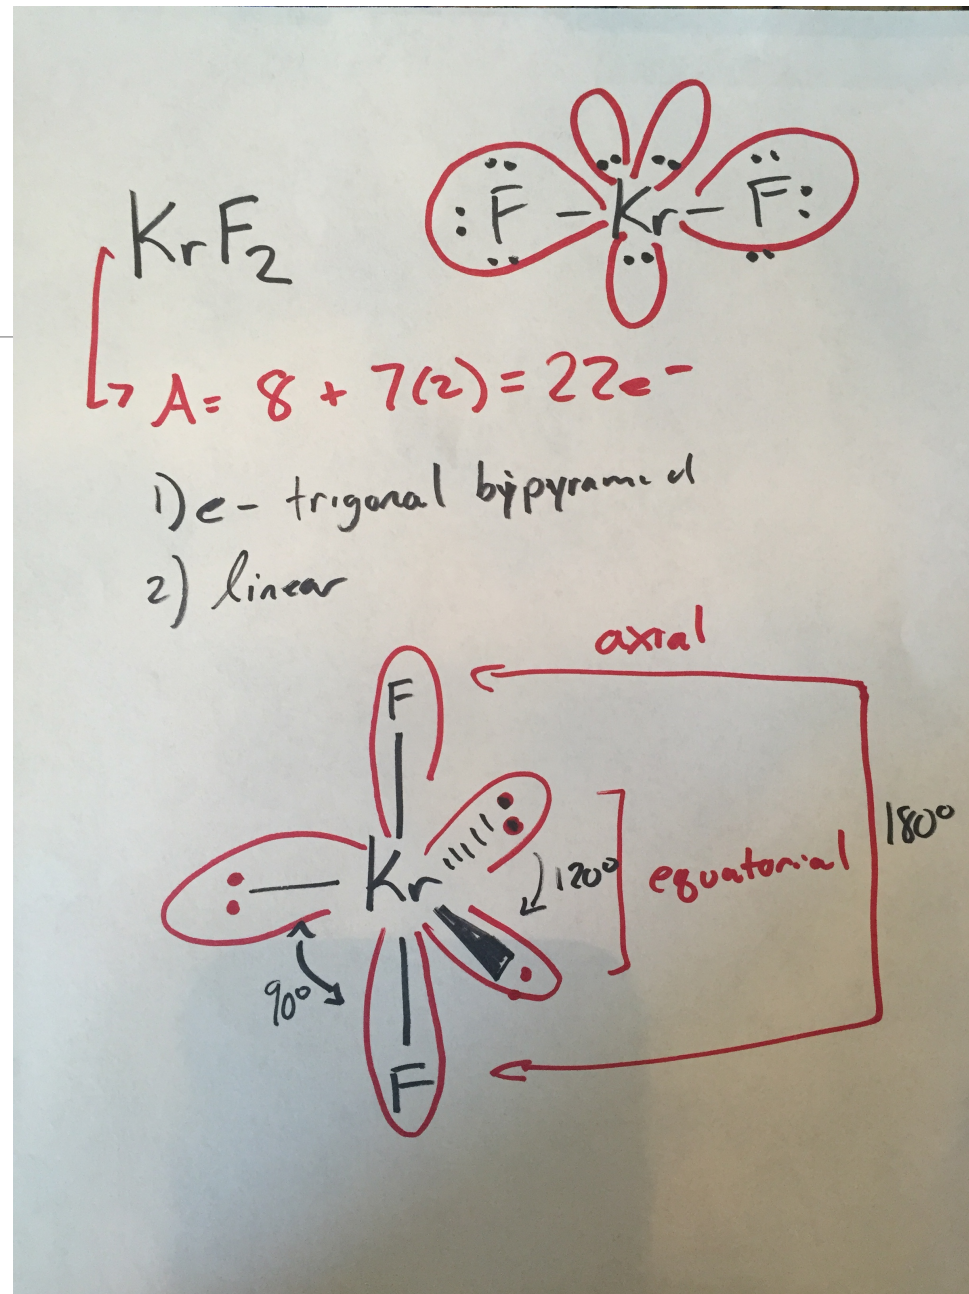 KrF₂
F – Kr – F
A = 8 + 7(2) = 22e⁻
1) e- trigonal bipyramid
2) linear
axial
F
Kr
120°
equatorial
180°
90°
F